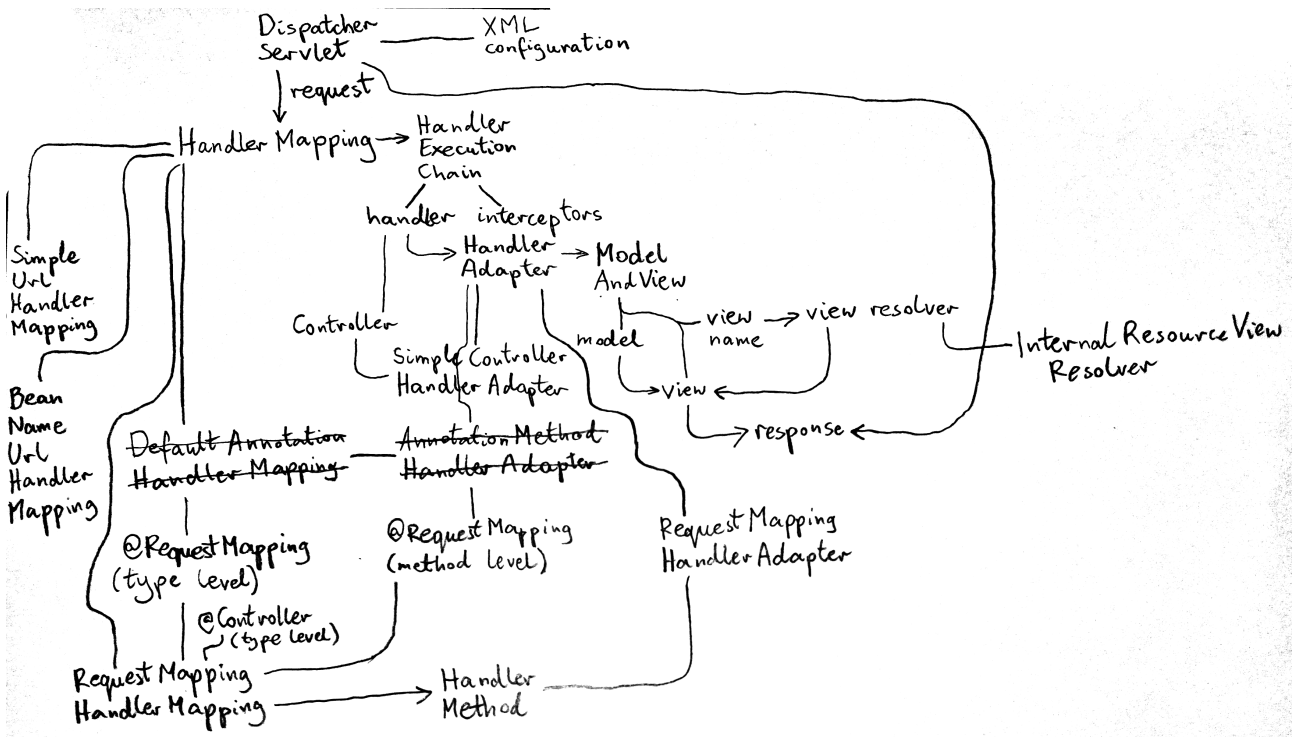 Dispatcher
Servlet
XML
configuration
request
Handler Mapping
Handler
Execution
Chain
handler
interceptors
Handler
Adapter
Model
AndView
Simple
Url
Handler
Mapping
Controller
model
view
name
view resolver
Internal Resource View
Resolver
Simple Controller
Handler Adapter
view
response
Bean
Name
Url
Handler
Mapping
Default Annotation
Handler Mapping
Annotation Method
Handler Adapter
@RequestMapping
(type level)
@RequestMapping
(method level)
Request Mapping
Handler Adapter
@Controller
(type level)
Request Mapping
Handler Mapping
Handler
Method